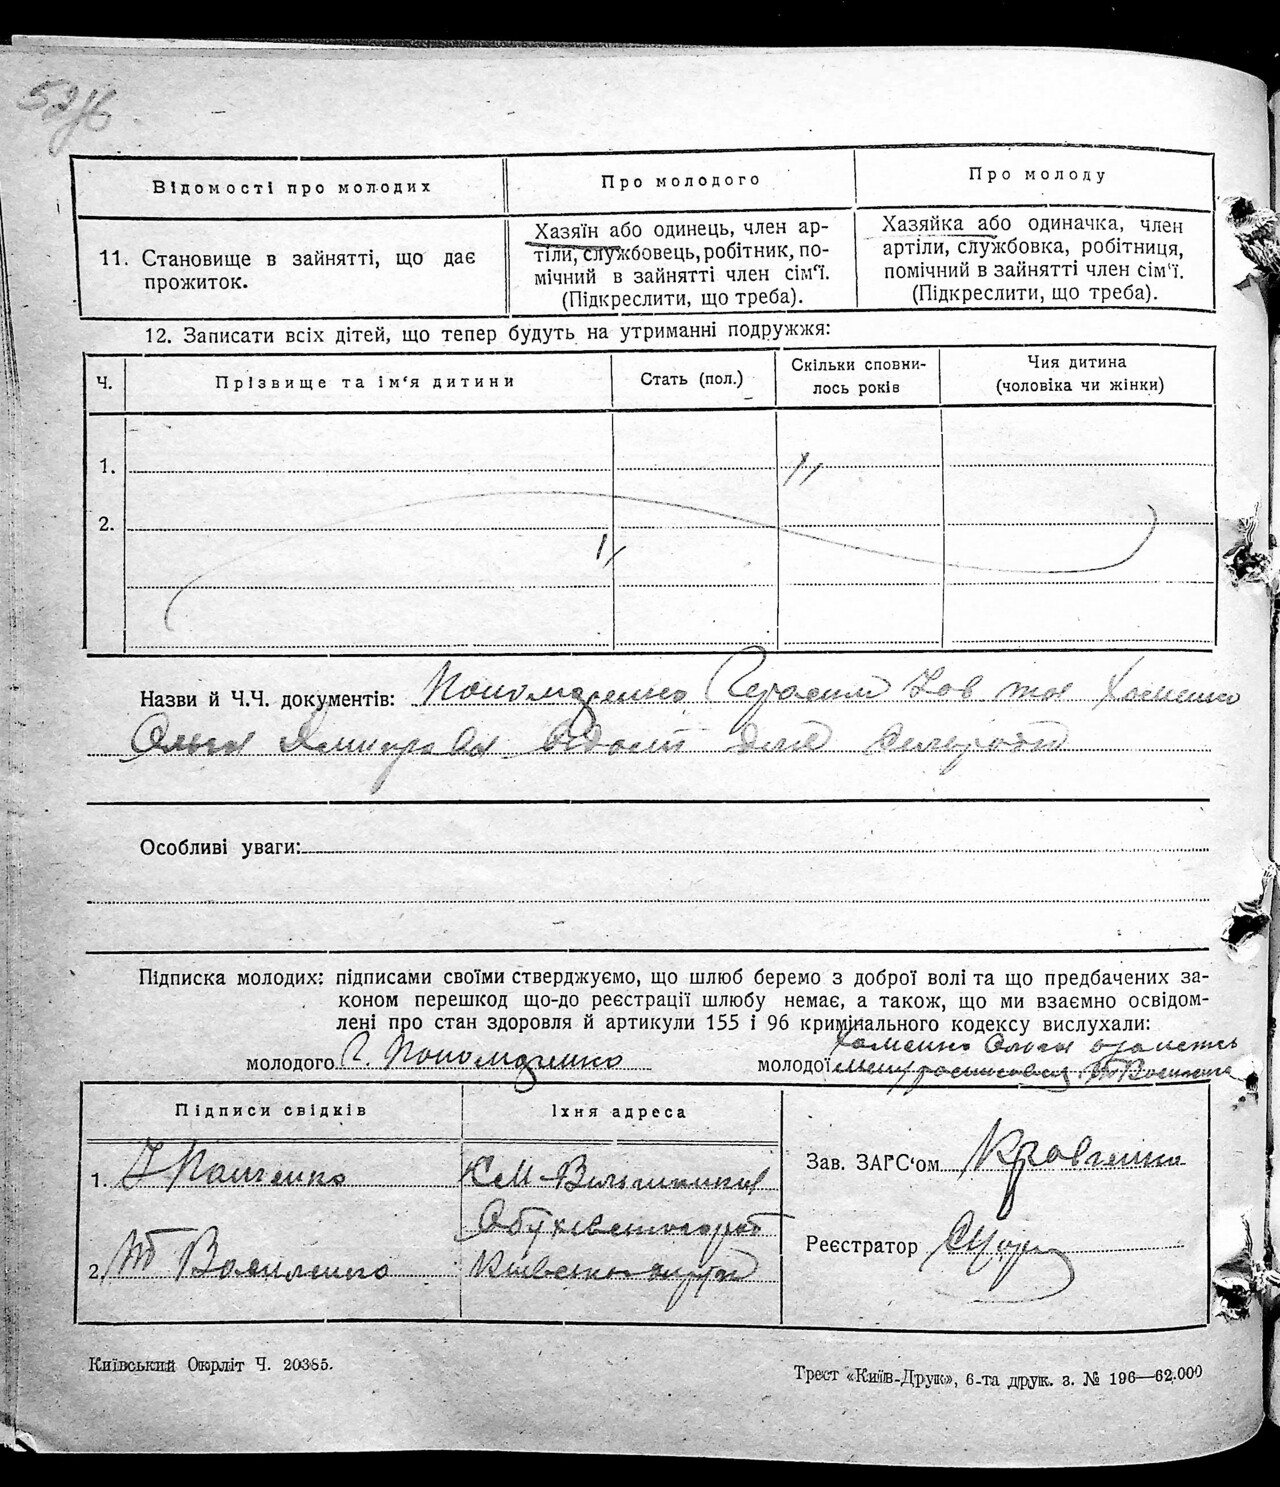 Відомості про молодих
Про молодого
Про молоду
11. Становище в зайнятті, що дає
прожиток.
Хазяїн або одинець, член ар-
тіли, службовець, робітник, по-
мічний в зайнятті член сім'ї.
(Підкреслити, що треба).
Хазяйка або одиначка, член
артіли, службовка, робітниця,
помічний в зайнятті член сім'ї.
(Підкреслити, що треба).
12. Записати всіх дітей, що тепер будуть на утриманні подружжя:
Ч.
Прізвище та ім'я дитини
Стать (пол.)
Скільки сповни-
лось років
Чия дитина
(чоловіка чи жінки)
1.
2.
Назви й Ч.Ч. документів: Пономаренко Герасим та Хоменко
Ольга відомі для сельради
Особливі уваги:
Підписка молодих: підписами своїми стверджуємо, що шлюб беремо з доброї волі та що предбачених за-
коном перешкод що-до реєстрації шлюбу немає, а також, що ми взаємно освідом-
лені про стан здоровля й артикули 155 і 96 кримінального кодексу вислухали:
молодого Г. Пономаренко
молодої Хоменко Ольга
Василенко
Підписи свідків
Їхня адреса
1. Панченко
2. Василенко
Обухівського
Київської округи
Зав. ЗАГС'ом Кравченко
Реєстратор
Київський Окрліт Ч. 20385.
Трест «Київ-Друк», 6-та друк. з. № 196—62.000